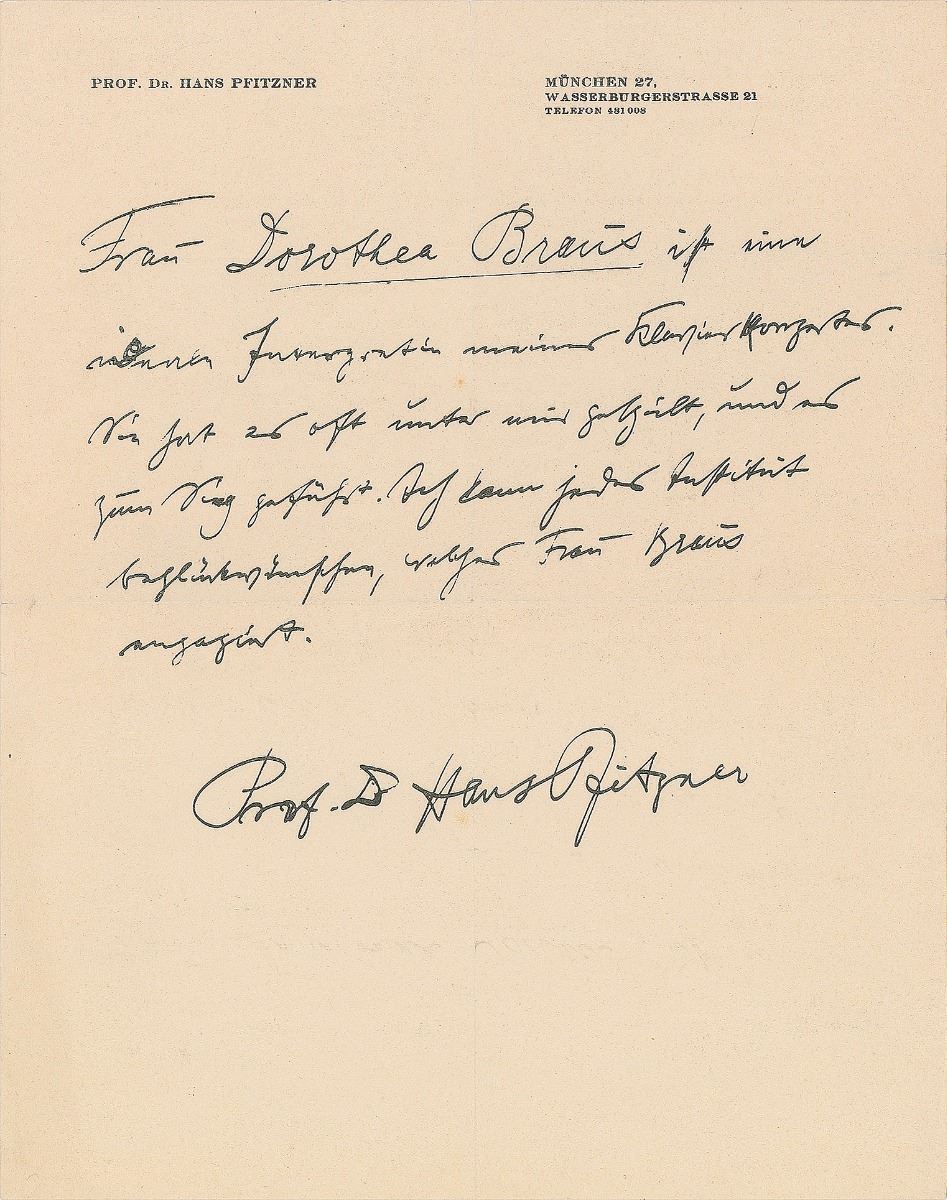 PROF. DR. HANS PFITZNER
MÜNCHEN 27,
WASSERBURGERSTRASSE 21
TELEFON 481008
Frau Dorothea Braus ist eine
Interpretin meines Klavierkonzertes.
Sie hat es oft unter mir gespielt, und es
zum Sieg geführt. Ich kann jedes Institut
beglückwünschen, welches Frau Braus
engagiert.
Prof. D Hans Pfitzner